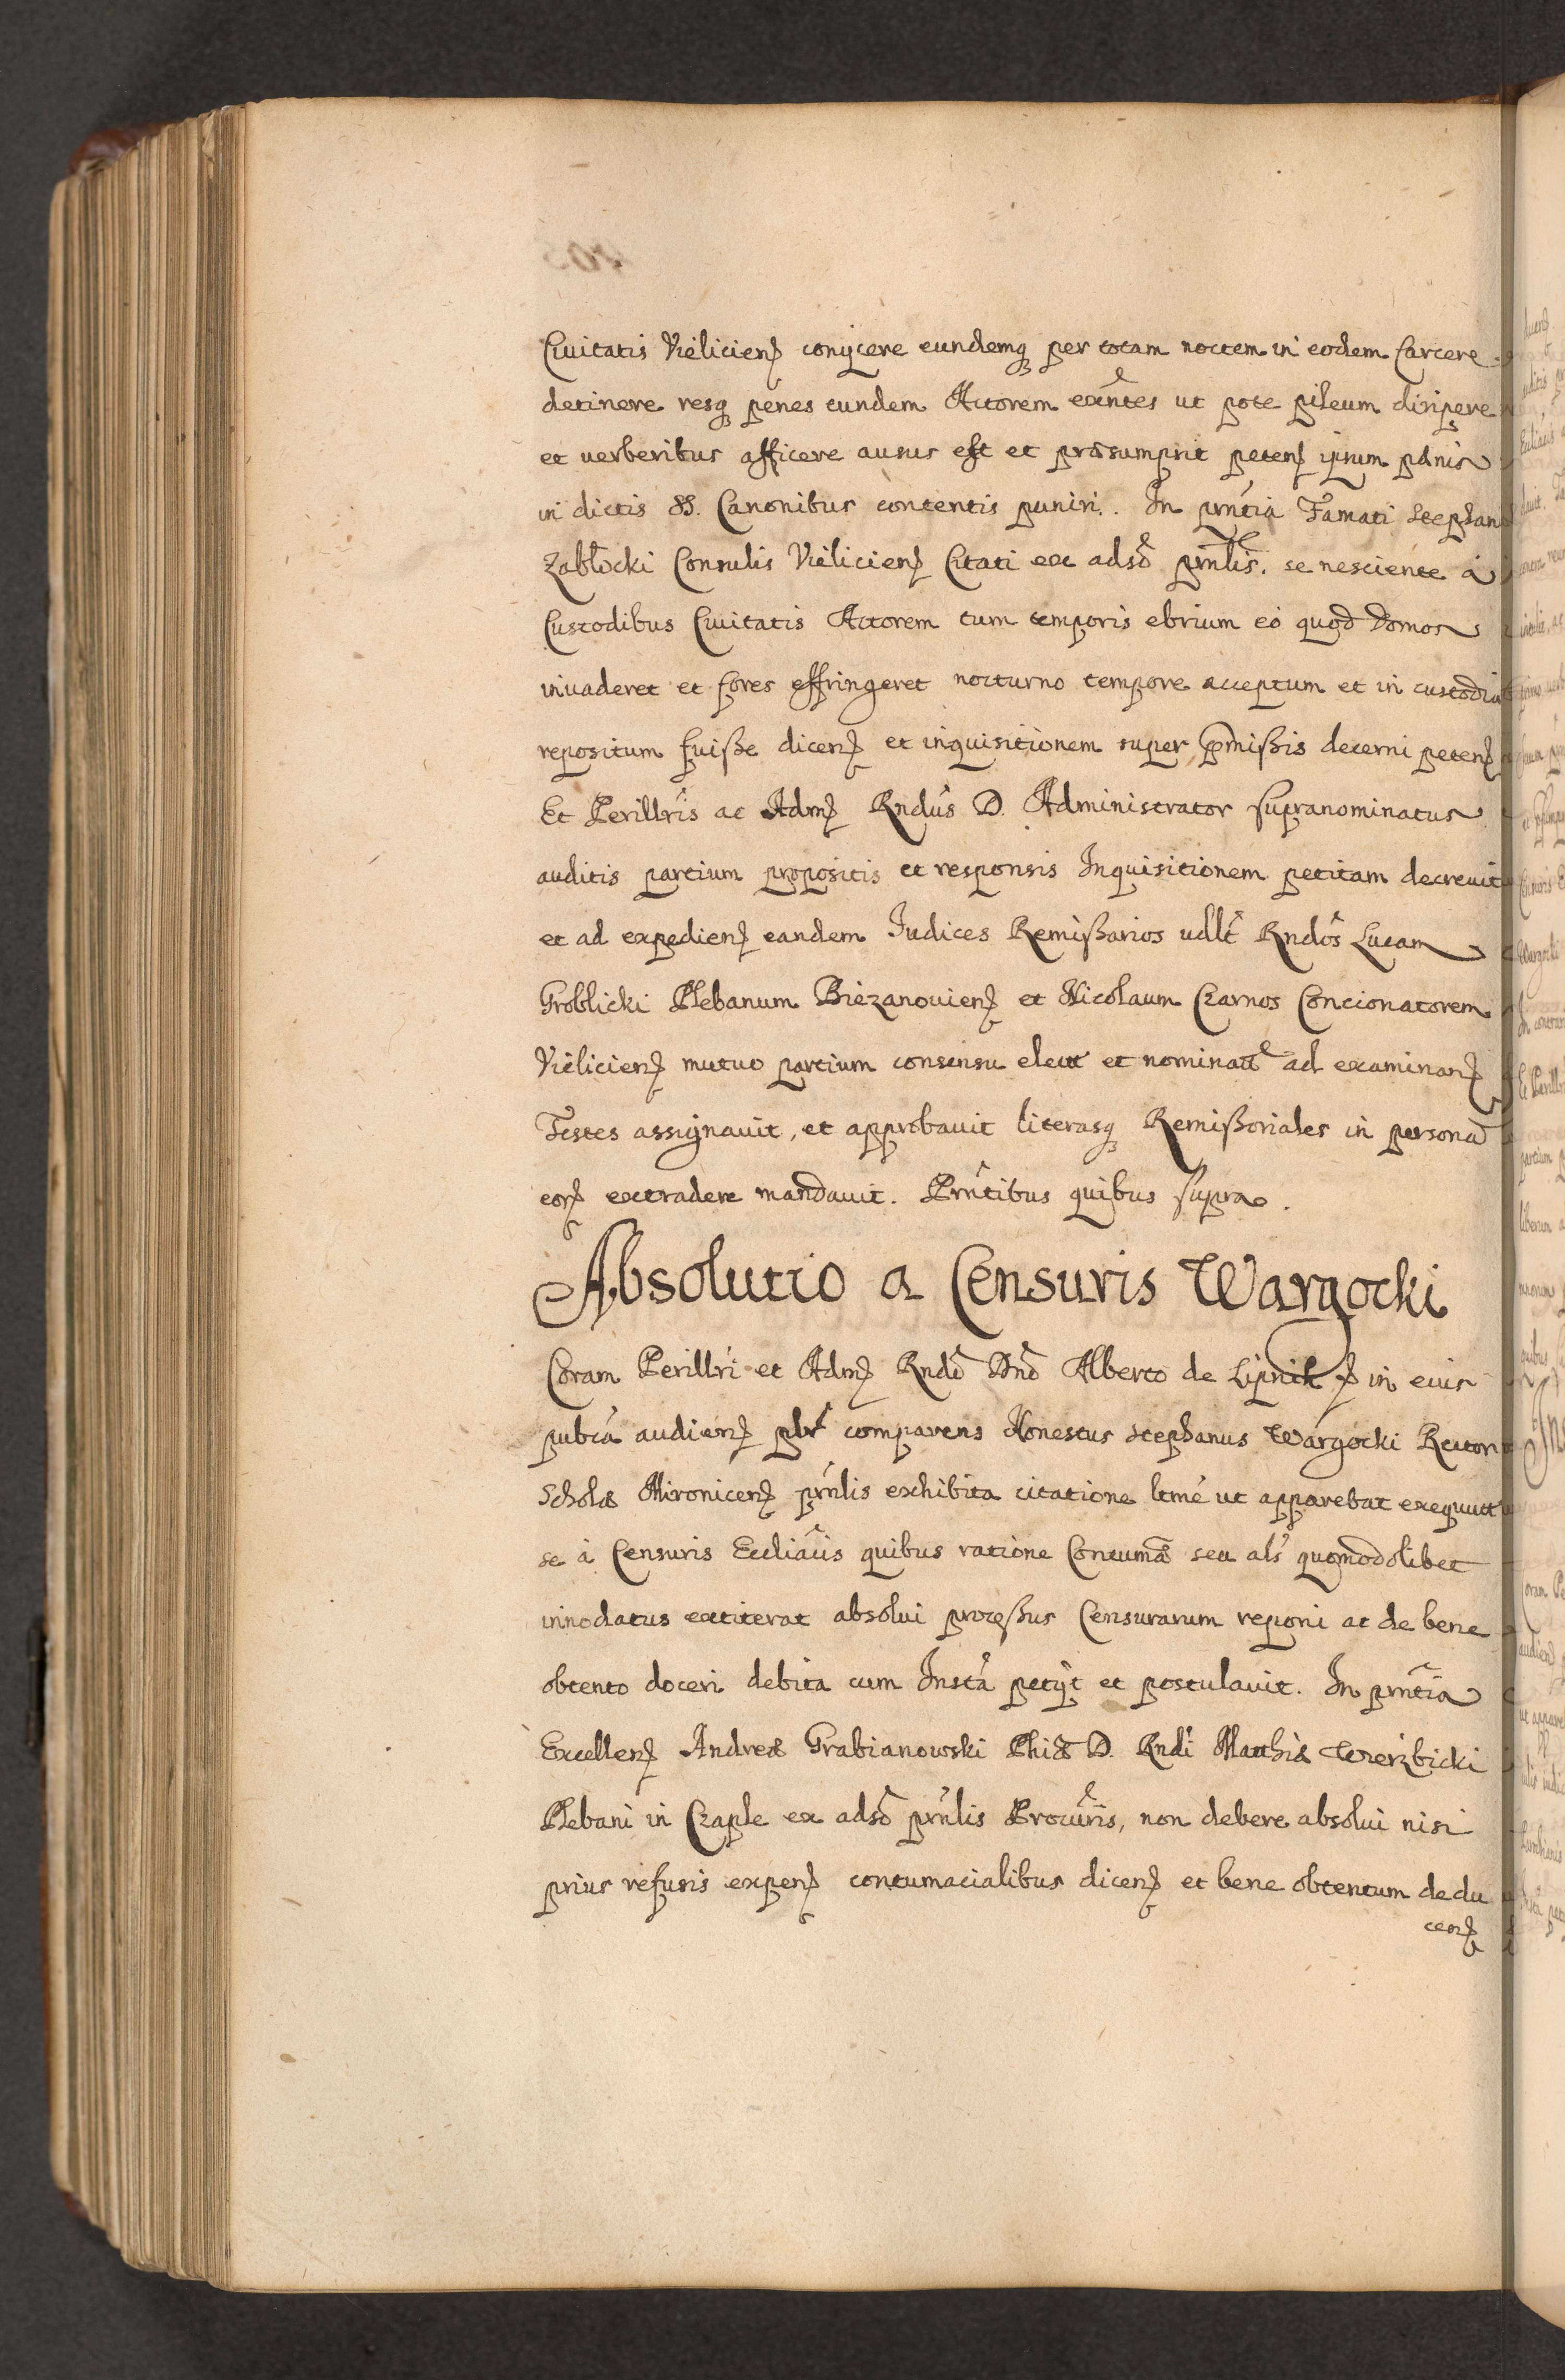 Ciuitatis Vieliciens conijcere eundemq per totam noctem in eodem Carcere
detinere resq penes eundem Actorem exntes ut pote pileum diripere
et uerberibus afficere ausus est et præsumpsit petens ipsum pænis
in dictis SS. Canonibus contentis puniri. In pntia Famati Stephani
Zabłocki Consulis Vieliciens Citati ex adso pnlis. se nesciente á
Custodibus Ciuitatis Actorem tum temporis ebrium eò quod Domos
inuaderet et fores effringeret nocturno tempore acceptum et in custodia
repositum fuiße dicens et inquisitionem super pmißis decerni petens
Et Perillris ac Adm Rndus D. Administrator supranominatus
auditis partium propositis et responsis Inquisitionem petitam decreuit
et ad expediens eandem Iudices Remißarios udlt Rndos Lucam
Groblicki Plebanum Biezanouiens et Nicolaum Czarnos Concionatorem
Vieliciens mutuo partium consensu elect et nominat ad examinans
Testes assignauit, et approbauit literasq Remißoriales in persona
eor extradere mandauit. Prntibus quibus supra.
Absolutio a Censuris Wargocki
Coram Perillri et Adm Rndo Dno Alberto de Lipnik in eius
pubca audiens plr comparens Honestus Stephanus Wargocki Rector
Scholæ Mironicens prnlis exhibita citatione ltmé ut apparebat exequut
se à Censuris Eccliacis quibus ratione Contumæ seu als quomodolibet
innodatus extiterat absolui proceßus Censurarum reponi ac de bene
obtento doceri debita cum Insta petijt et postulauit. In prntia
Excellens Andreæ Grabianowski Phiæ D. Rndi Matthiæ Wierzbicki
Plebani in Czaple ex adso prnlis Procuris, non debere absolui nisi
prius refusis expens contumacialibus dicens et bene obtentum dedu
cens